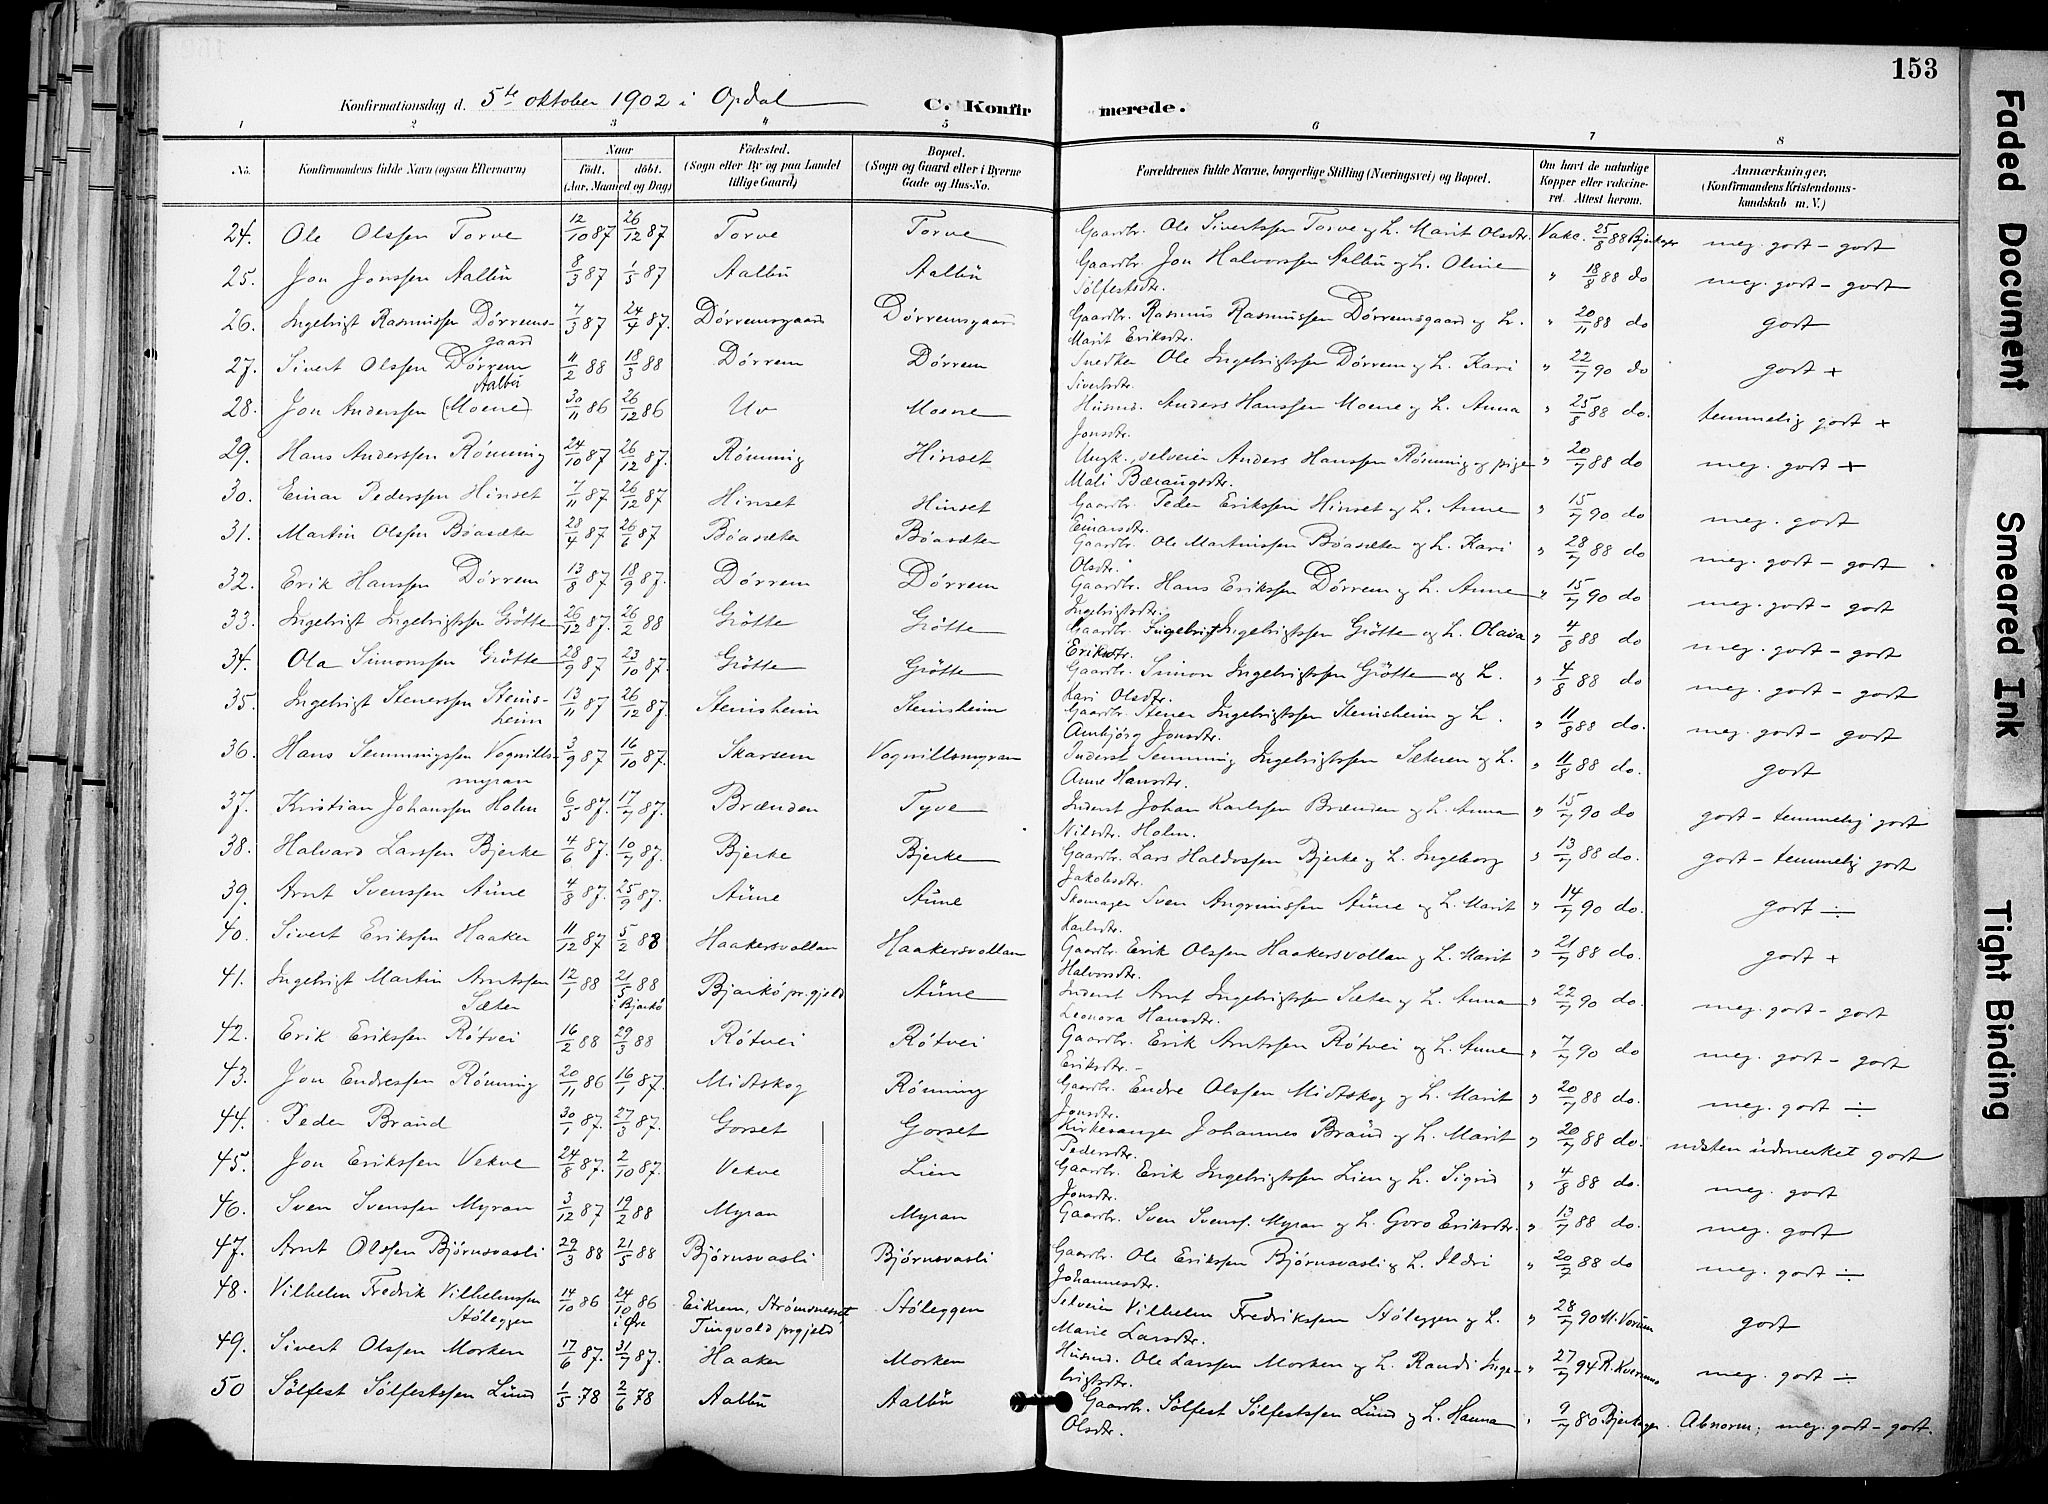 153
Konfirmationsdag d. 5te oktober 1902 i Opdal C. Konfirmerede.
1 2 3 4 5 6 7 8
No. Konfirmandens fulde Navn (ogsaa Efternavn) Naar Født. døbt. (Aar, Maaned og Dag) Fødested. (Sogn eller By og paa Landet tillige Gaard) Bopæl. (Sogn og Gaard eller i Byerne Gade og Hus-No. Forældrenes fulde Navne, borgerlige Stilling (Næringsvei) og Bopæl. Om havt de naturlige Kopper eller vakcineret. Attest herom. Anmærkninger. (Konfirmandens Kristendomskundskab m. V.)
24. Ole Olssen Torve 12/10 87 26/12 87 Torve Torve Gaardbr. Ole Sivertssen Torve og H. Marit Olsdtr. Vakc. 25/8 88 Bjerkager meg. godt - godt
25. Jon Jonssen Aalbu 8/3 87 1/5 87 Aalbu Aalbu Gaardbr. Jon Halvorssen Aalbu og H. Oline Sølfestsdtr. " 18/8 88 do meg. godt - godt
26. Ingebrigt Rasmussen Dørremsgaard 7/3 87 24/4 87. Dørremsgaard Dørremsgaard Gaardbr. Rasmus Rasmussen Dørremsgaard og H. Marit Eriksdtr. " 20/11 88 do godt
27. Sivert Olssen Dørrem 11/2 88 18/3 88 Dørrem Dørrem Snedker Ole Ingebrigtssen Dørrem og H. Kari Sivertsdtr. " 22/7 90 do godt +
28. Jon Anderssen Aalbu (Moene) 30/11 86 26/12 86 Uv Moene Husmd. Anders Hanssen Moene og H. Anna Jonsdtr. " 25/8 88 do. temmelig godt +
29. Hans Anderssen Rønning 24/10 87 26/12 87. Rønning Hinset Ungk., selveier Anders Hanssen Rønning og pige Mali Bæraugsdtr. " 20/7 88 do meg. godt +
30. Einar Pederssen Hinset 7/11 87 26/12 87 Hinset Hinset Gaardbr. Peder Erikssen Hinset og H. Anne Einarsdtr. " 15/7 90 do meg. godt
31. Martin Olssen Bøasæter 28/4 87 26/6 87 Bøasæter Bøasæter Gaardbr. Ole Martinssen Bøasæter og H. Kari Olsdtr. " 28/7 88 do meg. godt - godt
32. Erik Hanssen Dørrem 13/8 87 18/9 87. Dørrem Dørrem Gaardbr. Hans Erikssen Dørrem og H. Anne Ingebrigtsdtr. " 15/7 90 do meg. godt - godt
33. Ingebrigt Ingebrigtssen Gløtte 26/12 87. 26/2 88 Gløtte Gløtte Gaardbr. Ingebrigt Ingebrigtssen Gløtte og H. Olava Eriksdtr. " 4/8 88 do meg. godt - godt
34. Ola Simonssen Gløtte 28/9 87 23/10 87. Gløtte Gløtte Gaardbr. Simon Ingebrigtssen Gløtte og H. Kari Olsdtr. " 4/8 88 do meg. godt - godt
35. Ingebrigt Stenerssen Stensheim 13/11 87 26/12 87. Stensheim Stensheim Gaardbr. Stener Ingebrigtssen Stensheim og H. Ambjørg Jonsdtr. " 11/8 88 do. meg. godt - godt
36. Hans Semmingssen Vognillsmyran 3/9 87 16/10 87. Skarsem Vognillsmyran Inderst Semming Ingebrigtssen Sæteren og H. Anne Hansdtr. " 11/8 88 do. godt
37. Kristian Johanssen Holm 6/5 87. 17/7 87. Brænden Tyve Inderst Johan Karlssen Brænden og H. Anna Nilsdtr. Holm. " 15/7 90 do godt - temmelig godt
38. Halvard Larssen Bjerke 4/6 87. 10/7 87. Bjerke Bjerke Gaardbr. Lars Haldossen Bjerke og H. Ingeborg Jakobsdtr. " 13/7 88 do. godt - temmelig godt
39. Arnt Svenssen Aune 4/8 87. 25/9 87. Aune Aune Skomager Sven Angrimssen Aune og H. Marit Karlsdtr. " 14/7 90 do. godt ÷
40. Sivert Erikssen Haaker 11/12 87 5/2 88 Haakersvollan Haakersvollan Gaardbr. Erik Olssen Haakersvollan og H. Marit Halvorsdtr. " 21/7 88 do. godt +
41. Ingebrigt Martin Arntssen Sæter 12/1 88 21/5 88 i Bjarkø Bjarkø prgjeld Aune Inderst Arnt Ingebrigtssen Sæter og H. Anna Leonora Hansdtr. " 22/7 90 do. meg. godt - godt
42. Erik Erikssen Røtvei 16/2 88 29/3 88 Røtvei Røtvei Gaardbr. Erik Arntssen Røtvei og H. Anne Eriksdtr. " 7/7 90 do meg. godt - godt
43. Jon Endressen Rønning 20/11 86 16/1 87. Midtskog Rønning Gaardbr. Endre Olssen Midtskog og H. Marit Jonsdtr. " 20/7 88 do. meg. godt ÷
44. Peder Braud 30/1 87. 27/3 87. Gorset Gorset Kirkesanger Johannes Braud og H. Marit Pedersdtr. " 20/7 88 do. næsten udmerket godt
45. Jon Erikssen Vekve 24/8 87. 2/10 87. Vekve Lien Gaardbr. Erik Ingebrigtssen Lien og H. Sigrid Jonsdtr. " 4/8 88 do. meg. godt
46. Sven Svenssen Myran 3/12 87 19/2 88 Myran Myran Gaardbr. Sven Svenss. Myran og H. Goro Eriksdtr. " 13/7 88 do. meg. godt
47. Arnt Olssen Bjørnsvasli 29/3 88 21/5 88 Bjørnsvasli Bjørnsvasli Gaardbr. Ole Erikssen Bjørnsvasli og H. Ildri Johannesdtr. " 20/7 88 do meg. godt ÷
48. Vilhelm Fredrik Vilhelmssen Støleggen 14/10 86 24/10 86 i Øre Eikrem, Strømsneset Tingvold prgjeld Støleggen Selveier Vilhelm Fredrikssen Støleggen og H. Marie Larsdtr. " 28/7 90 M. Vorum godt
49. Sivert Olssen Morken 17/6 87. 31/7 87. Haaker Morken Husmd. Ole Larssen Morken og H. Randi Ingebrigtsdtr. " 27/7 94 R. Kvernmo meg. godt ÷
50 Sølfest Sølfestssen Lund 1/5 78 2/6 78 Aalbu Aalbu Gaardbr. Sølfest Sølfestssen Lund og H. Hanna Olsdtr. " 9/7 80 Bjerkager. Abnorm; meg. godt - godt.
Faded Document
Smeared Ink
Tight Binding